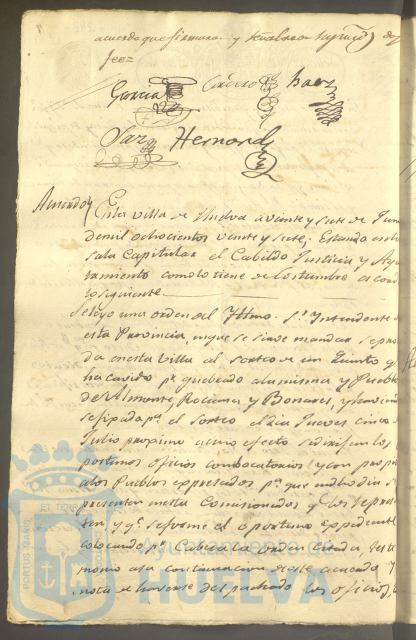 acuerdo que firmaron y señalaron sus mrds doy
fee=
Garcia Cordero Baez
Paz Hernandz
Acuerdo
En la villa de Huelva a veinte y siete de Junio
de mil ochocientos veinte y siete; Estando en la
sala Capitular el Cabildo Justicia y Ayun
tamiento como lo tiene de costumbre acordó
lo siguiente
Se leyo una orden del Yltmo. Sr. Yntendente de
esta Provincia, en que se sirve mandar se proce
da en esta Villa al sorteo de un Quinto q
ha cavido pr quebrado a la misma y Pueblos
de Almonte, Rociana y Bonares, y
el sorteo el dia Jueves cinco
Julio proximo a cuyo efecto se dirijan los
oportunos oficios combocatorios
a los Pueblos expresados pa que en dho dia se
presenten en esta Comisionados
y qe se forme el oportuno expediente
colocando pr Cabeza la orden citada, testi
monio a su continuacion de este acuerdo y
nota de haverse despachado los oficios,
PORTUS MARIS ET TERRAE
Ayuntamiento de
HUELVA